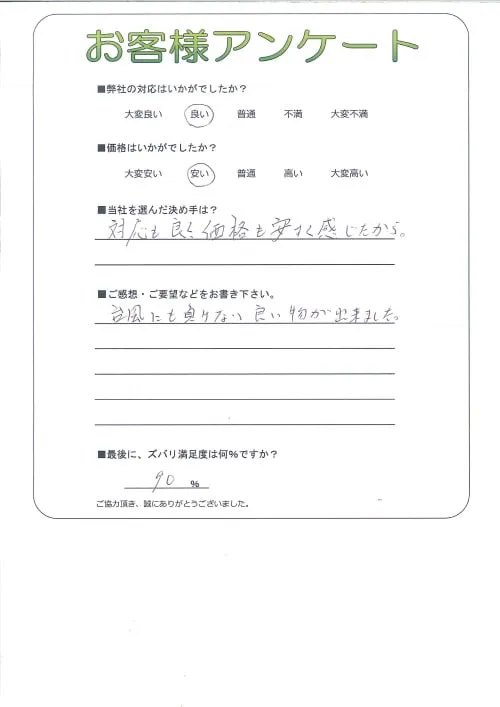 お客様アンケート
■弊社の対応はいかがでしたか？
大変良い 良い 普通 不満 大変不満
■価格はいかがでしたか？
大変安い 安い 普通 高い 大変高い
■当社を選んだ決め手は？
対応も良く、価格も安く感じたから。
■ご感想・ご要望などをお書き下さい。
台風にも負けない良い物が出来ました。
■最後に、ズバリ満足度は何％ですか？
90 ％
ご協力頂き、誠にありがとうございました。